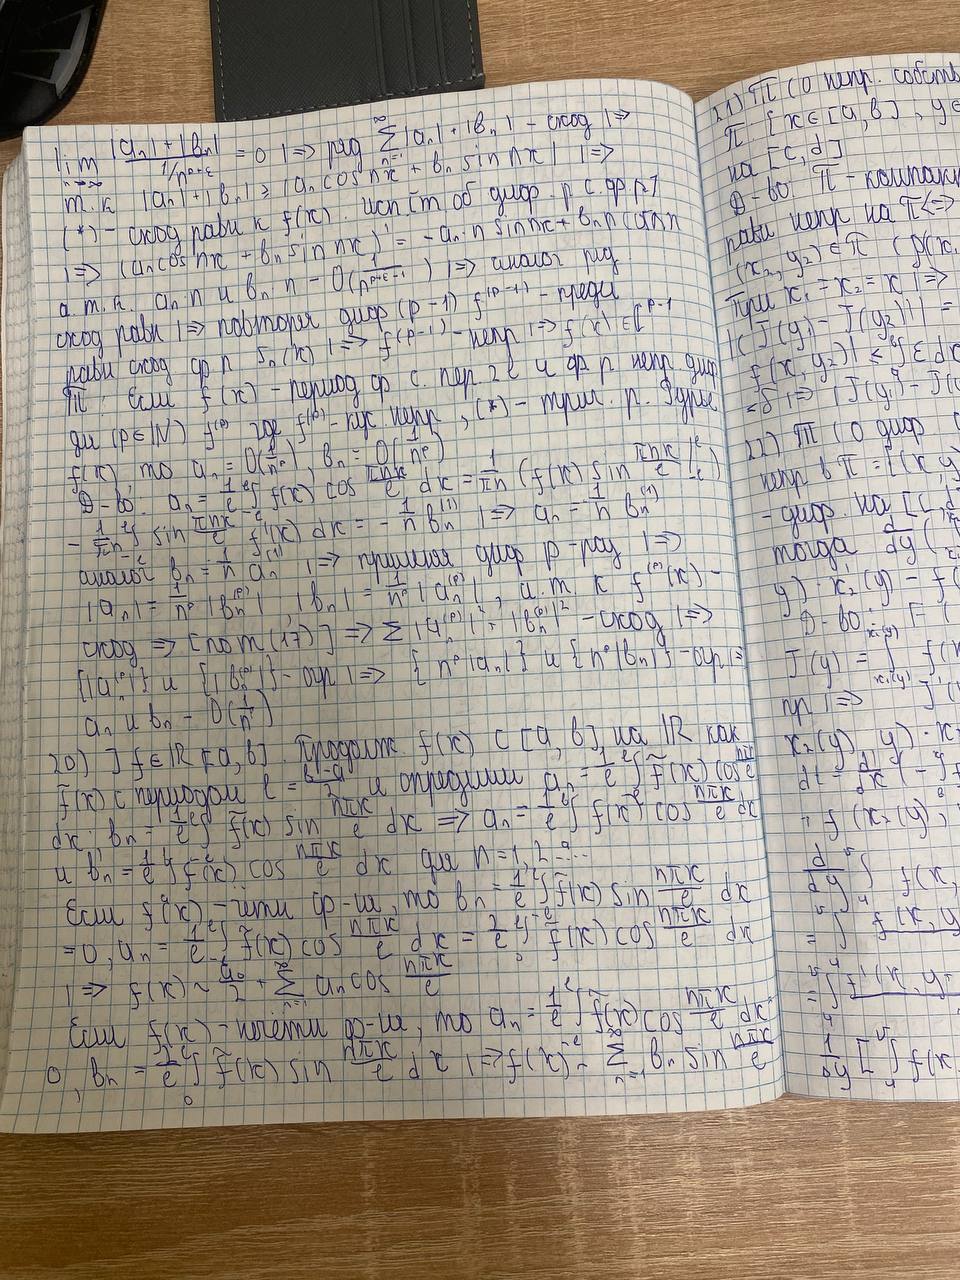 lim |aₙ|+|bₙ| / 1/nᵖ⁺ᵋ = 0 |⇒ ряд ∑ₙ₌₁^∞ |aₙ|+|bₙ| – сход |⇒
т.к |aₙ|+|bₙ| ≥ |aₙ cos nx + bₙ sin nx| |⇒
(*) – сход равн к f(x). исп т об диф. р с. ф р
|⇒ (aₙ cos nx + bₙ sin nx)' = -aₙ n sin nx + bₙ n cos nx
а т.к. aₙ n и bₙ n – O(1/nᵖ⁺ᵋ⁻¹) |⇒ аналог ряд
сход равн |⇒ повторяя диф (p-1) f⁽ᵖ⁻¹⁾ – предел
равн сход ф р Sₙ(x) |⇒ f⁽ᵖ⁻¹⁾ – непр |⇒ f(x) ∈ Cᵖ⁻¹
П: Если f(x) – период ф с. пер 2l и ф р непр. диф
ди (p∈ℕ) f⁽ᵖ⁾ где f⁽ᵖ⁾ – кус непр, (*) – триг. р. Фурье
f(x), то aₙ = O(1/nᵖ), bₙ = O(1/nᵖ)
Д-во: aₙ = 1/l ∫₋ₗˡ f(x) cos πnx/l dx = 1/πn (f(x) sin πnx/l |₋ₗˡ)
- 1/πn ∫₋ₗˡ sin πnx/l f'(x) dx = - 1/n bₙ⁽¹⁾ |⇒ aₙ = 1/n bₙ⁽¹⁾
аналог bₙ = 1/n aₙ⁽¹⁾ |⇒ применяя диф p-раз |⇒
|aₙ| = 1/nᵖ |bₙ⁽ᵖ⁾|, |bₙ| = 1/nᵖ |aₙ⁽ᵖ⁾|, а т. к f⁽ᵖ⁾(x) –
сход ⇒ [по т (17)] ⇒ ∑ |aₙ⁽ᵖ⁾|² + |bₙ⁽ᵖ⁾|² – сход |⇒
{|aₙ⁽ᵖ⁾|} и {|bₙ⁽ᵖ⁾|} – огр |⇒ {nᵖ|aₙ|} и {nᵖ|bₙ|} – огр |⇒
aₙ и bₙ – O(1/nᵖ)
20) ] f∈ℝ [a, b]. Продолж f(x) с [a, b] на ℝ как
f̃(x) с периодом l = b-a/2 и определим aₙ = 1/l ∫ f̃(x) cos nπx/l
dx; bₙ = 1/l ∫₋ₗˡ f̃(x) sin nπx/l dx ⇒ aₙ = 1/l ∫ f(x) cos nπx/l dx
и bₙ = 1/l ∫ f(x) cos nπx/l dx для n = 1, 2 ...
Если f(x) – четн ф-ия, то bₙ = 1/l ∫₋ₗˡ f̃(x) sin nπx/l dx
= 0, aₙ = 1/l ∫₋ₗˡ f̃(x) cos nπx/l dx = 2/l ∫₀ˡ f̃(x) cos nπx/l dx
|⇒ f(x) ~ a₀/2 + ∑ₙ₌₁^∞ aₙ cos nπx/l
Если f(x) – нечетн ф-ия, то aₙ = 1/l ∫₋ₗˡ f̃(x) cos nπx/l dx =
0, bₙ = 2/l ∫₀ˡ f̃(x) sin nπx/l dx |⇒ f(x) ~ ∑ₙ₌₁^∞ bₙ sin nπx/l
21) Т (О непр. собств
П {x∈[a, b], y∈
на [c, d]
Д-во: П – компакт
равн непр на П ⇔
(x₂, y₂) ∈ П (ρ(x,
При x₁ = x₂ = x |⇒
|(J(y₁) – J(y₂))| =
f(x, y₂)| ≤ ∫ ε dx
= δ |⇒ |J(y₁) – J(
22) Т (О диф
непр в П = {(x, y)
– диф. на [c, d
тогда d/dy (
y)·x₂'(y) – f(
Д-во: F (
J(y) = ∫ f(x
пр |⇒ J'(
x₂(y), y)·x
= f(x₂(y),
d/dy ∫ f(x,
= ∫ f(x, y
= ∫ f'(x, y
1/Δy [∫ f(x